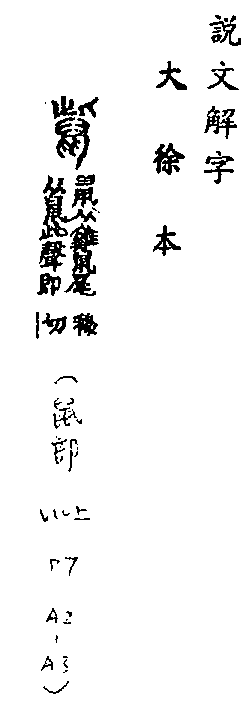 說文解字
大徐本
鼠似雞鼠尾
从鼠此聲即移切
(鼠部
上
P7
A2-A3)